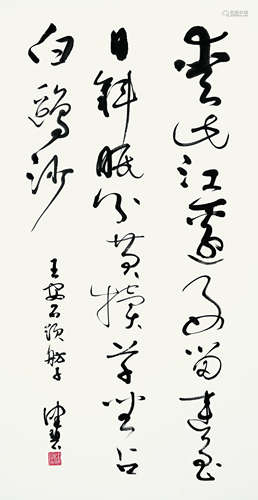 愛此江邊好留連至
日斜眠分黄犢草坐占
白鷗沙
王安石題舫子